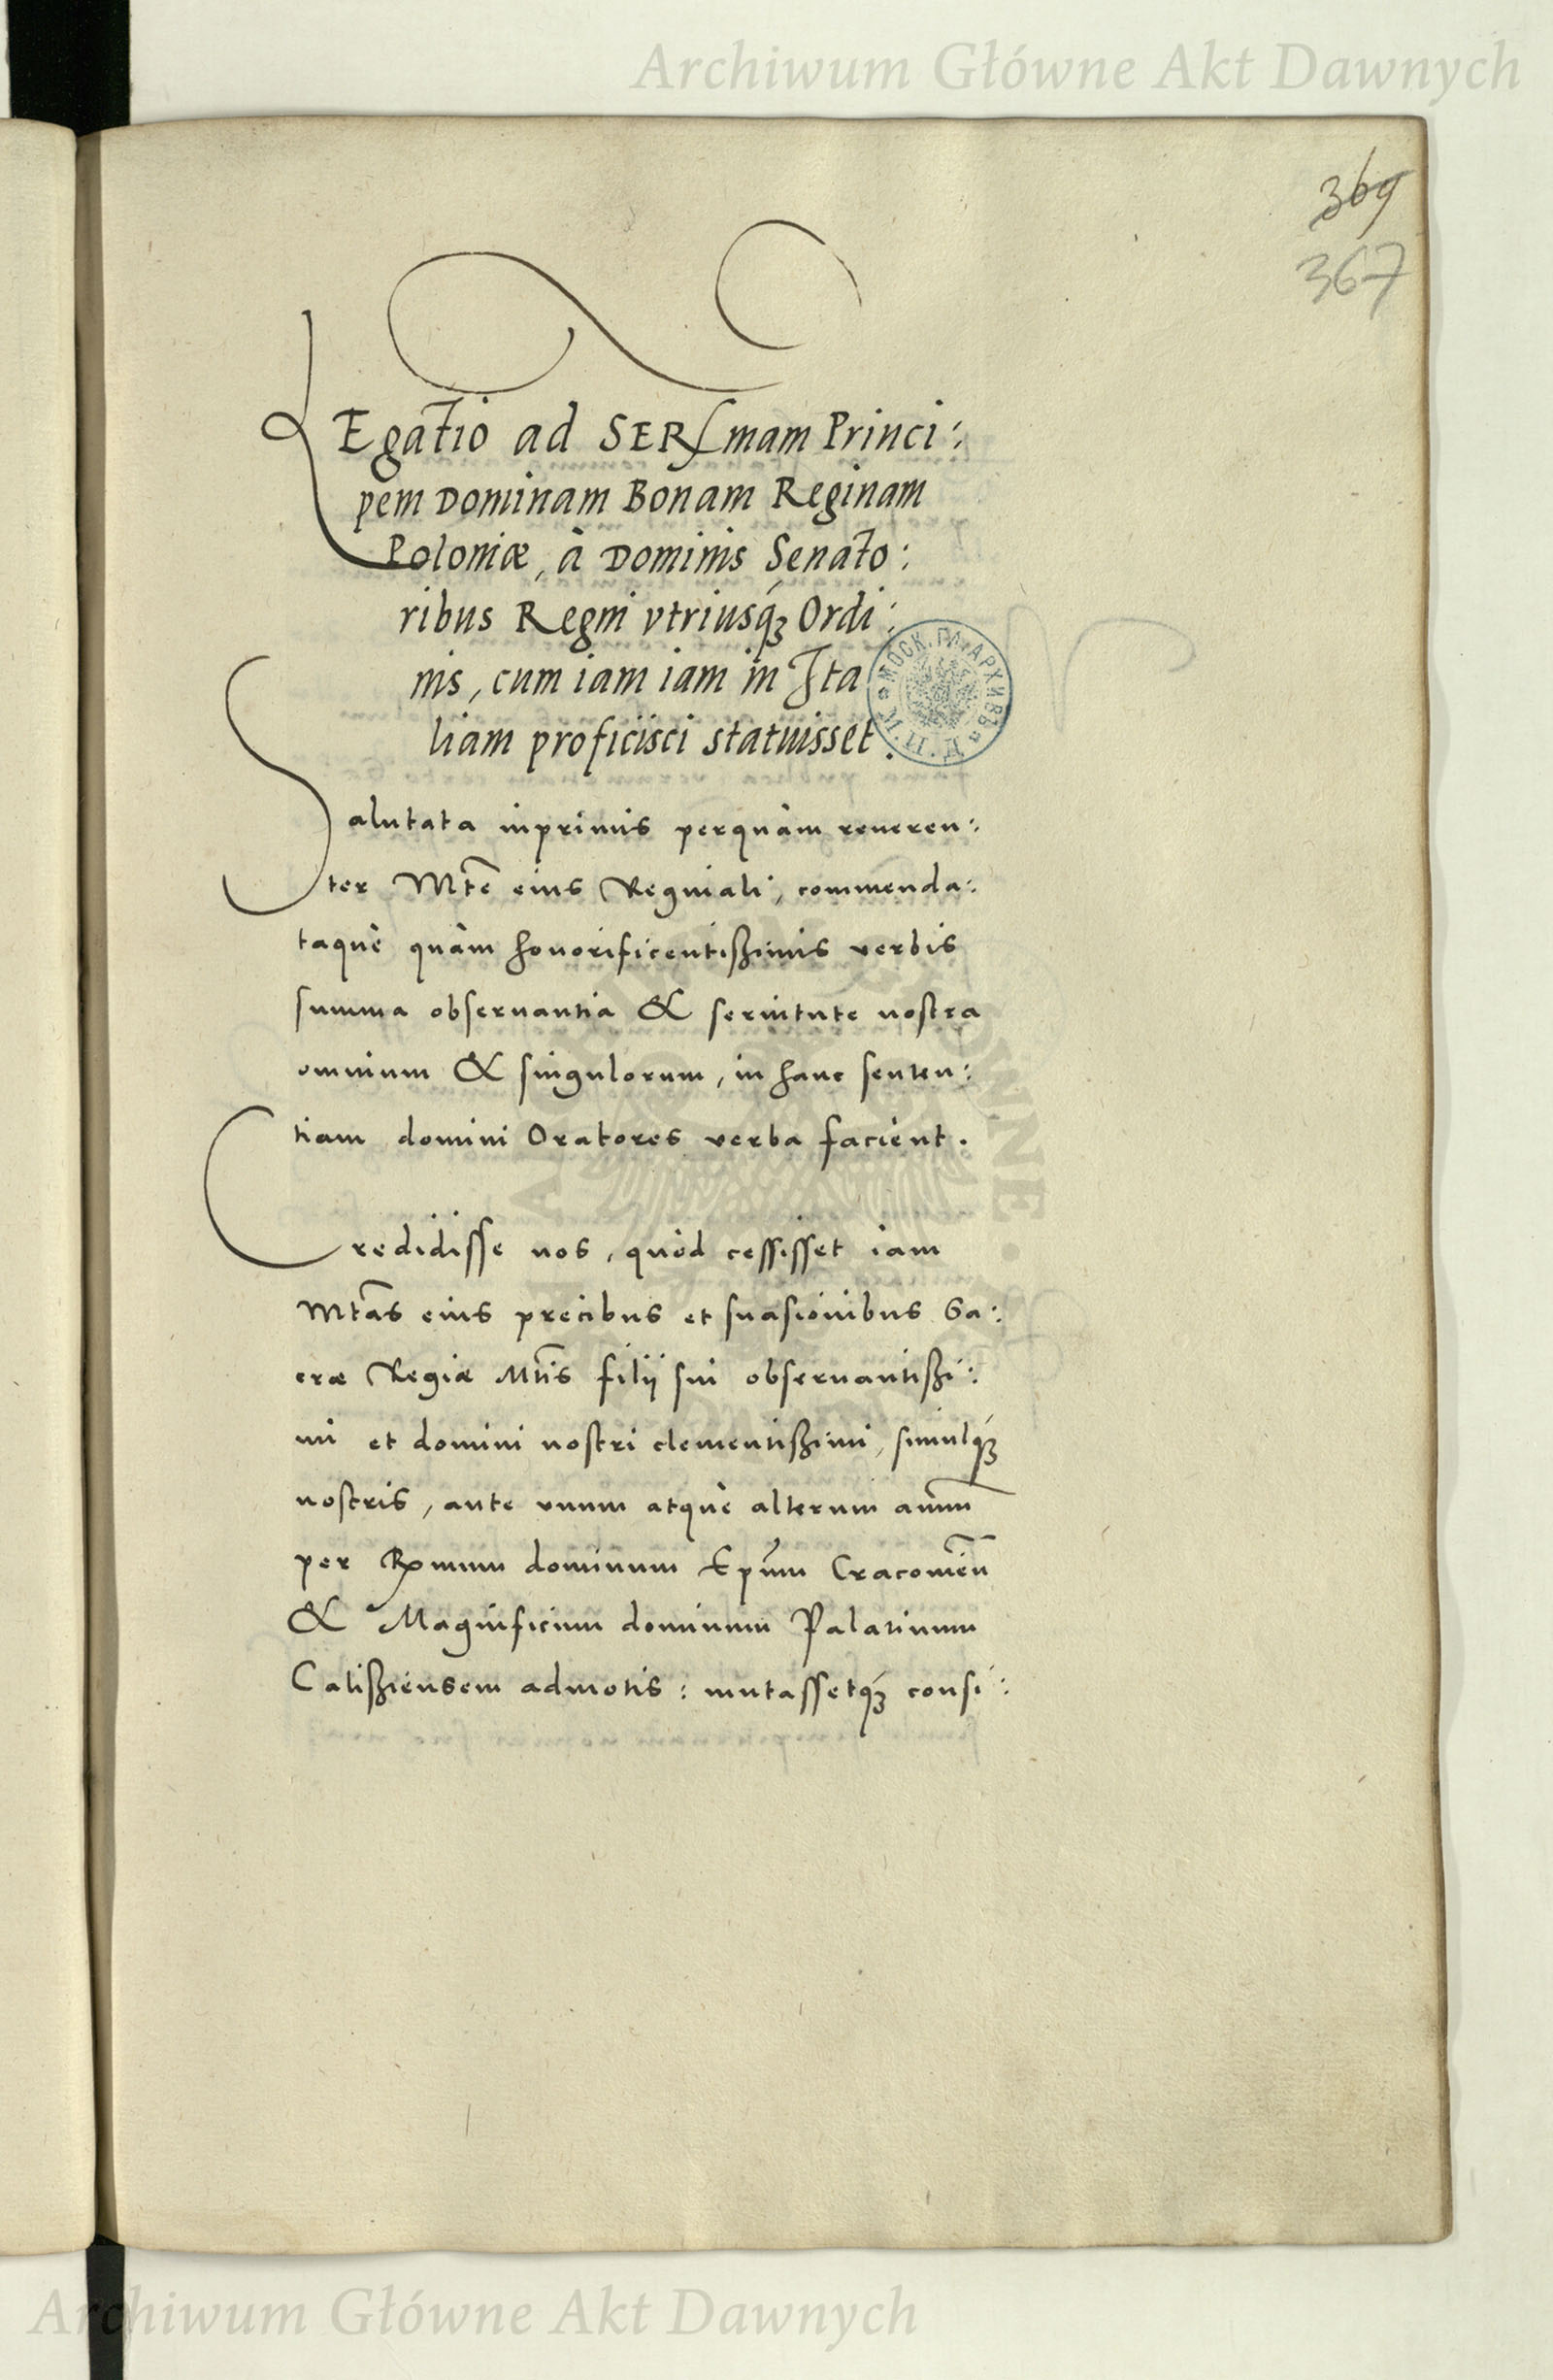 Archiwum Główne Akt Dawnych
369
367
LEgatio ad SERſmam Princi:
pem Dominam Bonam Reginam
Poloniæ, à Dominis Senato:
ribus Regni vtriusq́ꝫ Ordi:
nis, cum iam iam in Ita
liam proficisci statuisset.
Salutata inprimis perquàm reueren:
ter Mt̃e eius Reginali, commenda:
taquè quàm honorificentißimis verbis
summa obſeruantia & ſeruitute noſtra
omnium & ſingulorum, in hanc ſenten:
tiam domini Oratores verba facient.
Credidiſſe nos, quòd ceſſiſſet iam
Mt̃as eius precibus et ſuaſionibus Sa:
cræ Regiæ Mt̃is filij ſui obſeruantißi:
mi et domini noſtri clementißimi, ſimulq́ꝫ
noſtris, ante vnum atquè alterum annũ
per Rx̃mum dominum Ep̃um Cracouień
& Magnificum dominum Palatinum
Calißiensem admotis: mutaſſetq́ꝫ conſi:
Archiwum Główne Akt Dawnych